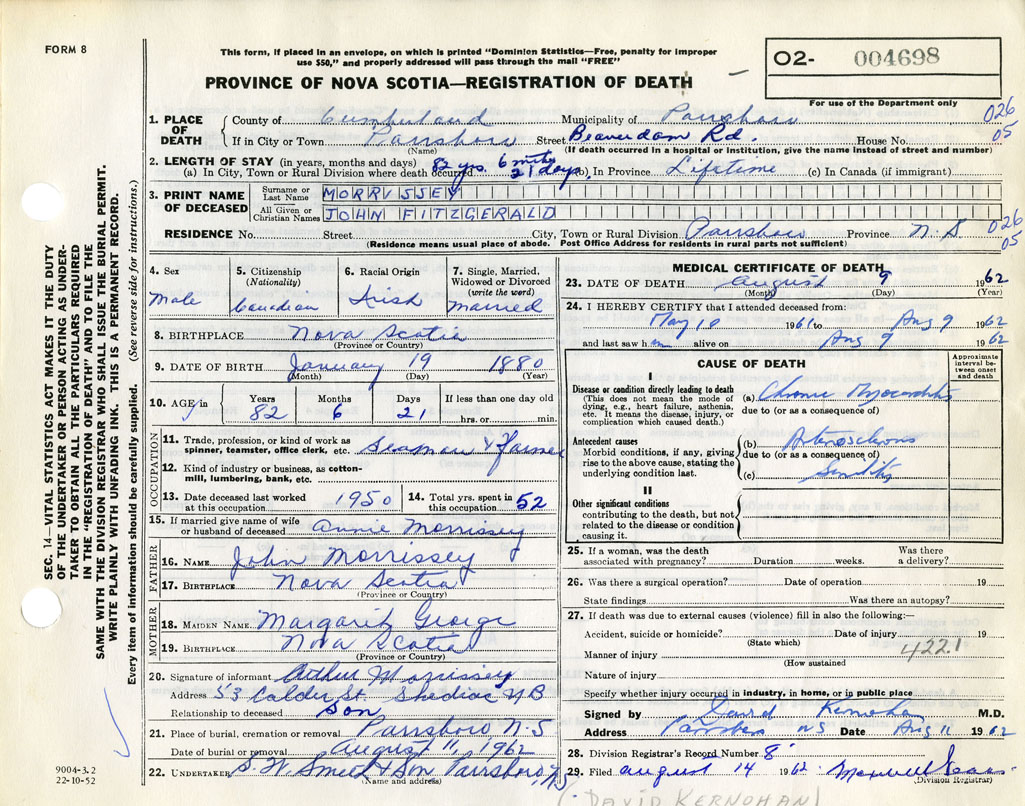 FORM 8
This form, if placed in an envelope, on which is printed "Dominion Statistics—Free, penalty for improper
use $50," and properly addressed will pass through the mail "FREE"
PROVINCE OF NOVA SCOTIA—REGISTRATION OF DEATH
O2- 004698
For use of the Department only
1. PLACE OF DEATH
County of Cumberland Municipality of Parrsboro 026
If in City or Town Parrsboro Street Beaverdam Rd. House No. 05
(Name) (If death occurred in a hospital or institution, give the name instead of street and number)
2. LENGTH OF STAY (in years, months and days) 82 yrs. 6 mths
(a) In City, Town or Rural Division where death occurred 21 days. (b) In Province Lifetime (c) In Canada (if immigrant)
3. PRINT NAME OF DECEASED
Surname or Last Name MORRISSEY
All Given or Christian Names JOHN FITZGERALD
RESIDENCE No. Street City, Town or Rural Division Parrsboro Province N.S 026 05
(Residence means usual place of abode. Post Office Address for residents in rural parts not sufficient)
4. Sex Male
5. Citizenship (Nationality) Canadian
6. Racial Origin Irish
7. Single, Married, Widowed or Divorced (write the word) Married
8. BIRTHPLACE Nova Scotia
(Province or Country)
9. DATE OF BIRTH January 19 1880
(Month) (Day) (Year)
10. AGE in Years Months Days If less than one day old
82 6 21 hrs. or min.
OCCUPATION
11. Trade, profession, or kind of work as
spinner, teamster, office clerk, etc. Seaman & Farmer
12. Kind of industry or business, as cotton-
mill, lumbering, bank, etc.
13. Date deceased last worked
at this occupation 1950
14. Total yrs. spent in
this occupation 52
15. If married give name of wife
or husband of deceased Annie Morrissey
FATHER
16. NAME John Morrissey
17. BIRTHPLACE Nova Scotia
(Province or Country)
MOTHER
18. MAIDEN NAME Margaret George
19. BIRTHPLACE Nova Scotia
(Province or Country)
20. Signature of informant Arthur Morrissey
Address 53 Calder St. Shediac N B
Relationship to deceased Son
21. Place of burial, cremation or removal Parrsboro, N.S
Date of burial or removal August 11, 1962
22. UNDERTAKER S. W. Smith & Son Parrsboro, N.S
(Name and address)
MEDICAL CERTIFICATE OF DEATH
23. DATE OF DEATH August 9 1962
(Month) (Day) (Year)
24. I HEREBY CERTIFY that I attended deceased from:
May 10 1961 to Aug 9 1962
and last saw him alive on Aug 9 1962
CAUSE OF DEATH
Approximate interval between onset and death
I
Disease or condition directly leading to death
(This does not mean the mode of
dying, e.g., heart failure, asthenia,
etc. It means the disease, injury, or
complication which caused death.)
(a) Chronic Myocarditis
due to (or as a consequence of)
Antecedent causes
Morbid conditions, if any, giving
rise to the above cause, stating the
underlying condition last.
(b)
due to (or as a consequence of)
(c) Senility
II
Other significant conditions
contributing to the death, but not
related to the disease or condition
causing it.
25. If a woman, was the death
associated with pregnancy? Duration weeks. Was there
a delivery?
26. Was there a surgical operation? Date of operation 19
State findings Was there an autopsy?
27. If death was due to external causes (violence) fill in also the following:—
Accident, suicide or homicide? Date of injury 19
(State which)
Manner of injury 4221
(How sustained
Nature of injury
Specify whether injury occurred in industry, in home, or in public place
Signed by David Kernohan M.D.
Address Parrsboro NS Date Aug 11 1962
28. Division Registrar's Record Number 8
29. Filed august 14 1962 Maxwell
(Division Registrar)
(DAVID KERNOHAN)
SEC. 14—VITAL STATISTICS ACT MAKES IT THE DUTY
OF THE UNDERTAKER OR PERSON ACTING AS UNDER-
TAKER TO OBTAIN ALL THE PARTICULARS REQUIRED
IN THE "REGISTRATION OF DEATH" AND TO FILE THE
SAME WITH THE DIVISION REGISTRAR WHO SHALL ISSUE THE BURIAL PERMIT.
WRITE PLAINLY WITH UNFADING INK. THIS IS A PERMANENT RECORD.
Every item of information should be carefully supplied. (See reverse side for instructions.)
9004-3.2
22-10-52